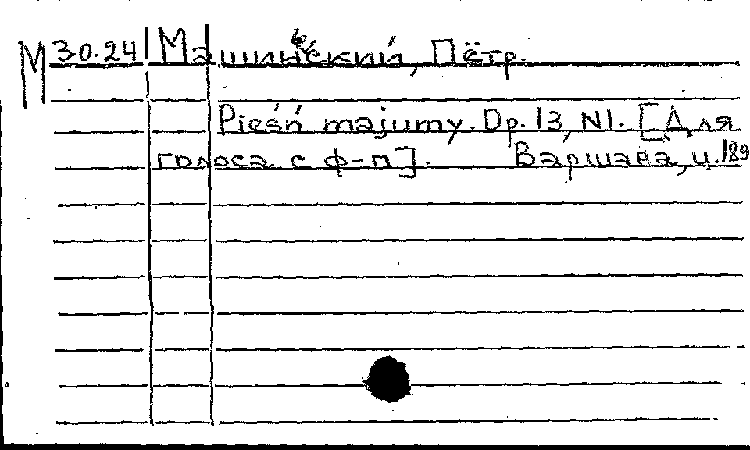 М 30.24 Машиньский, Пётр.
Pieśń majumy. Op. 13, N1. [Для
голоса с ф-п]. Варшава, ц.189